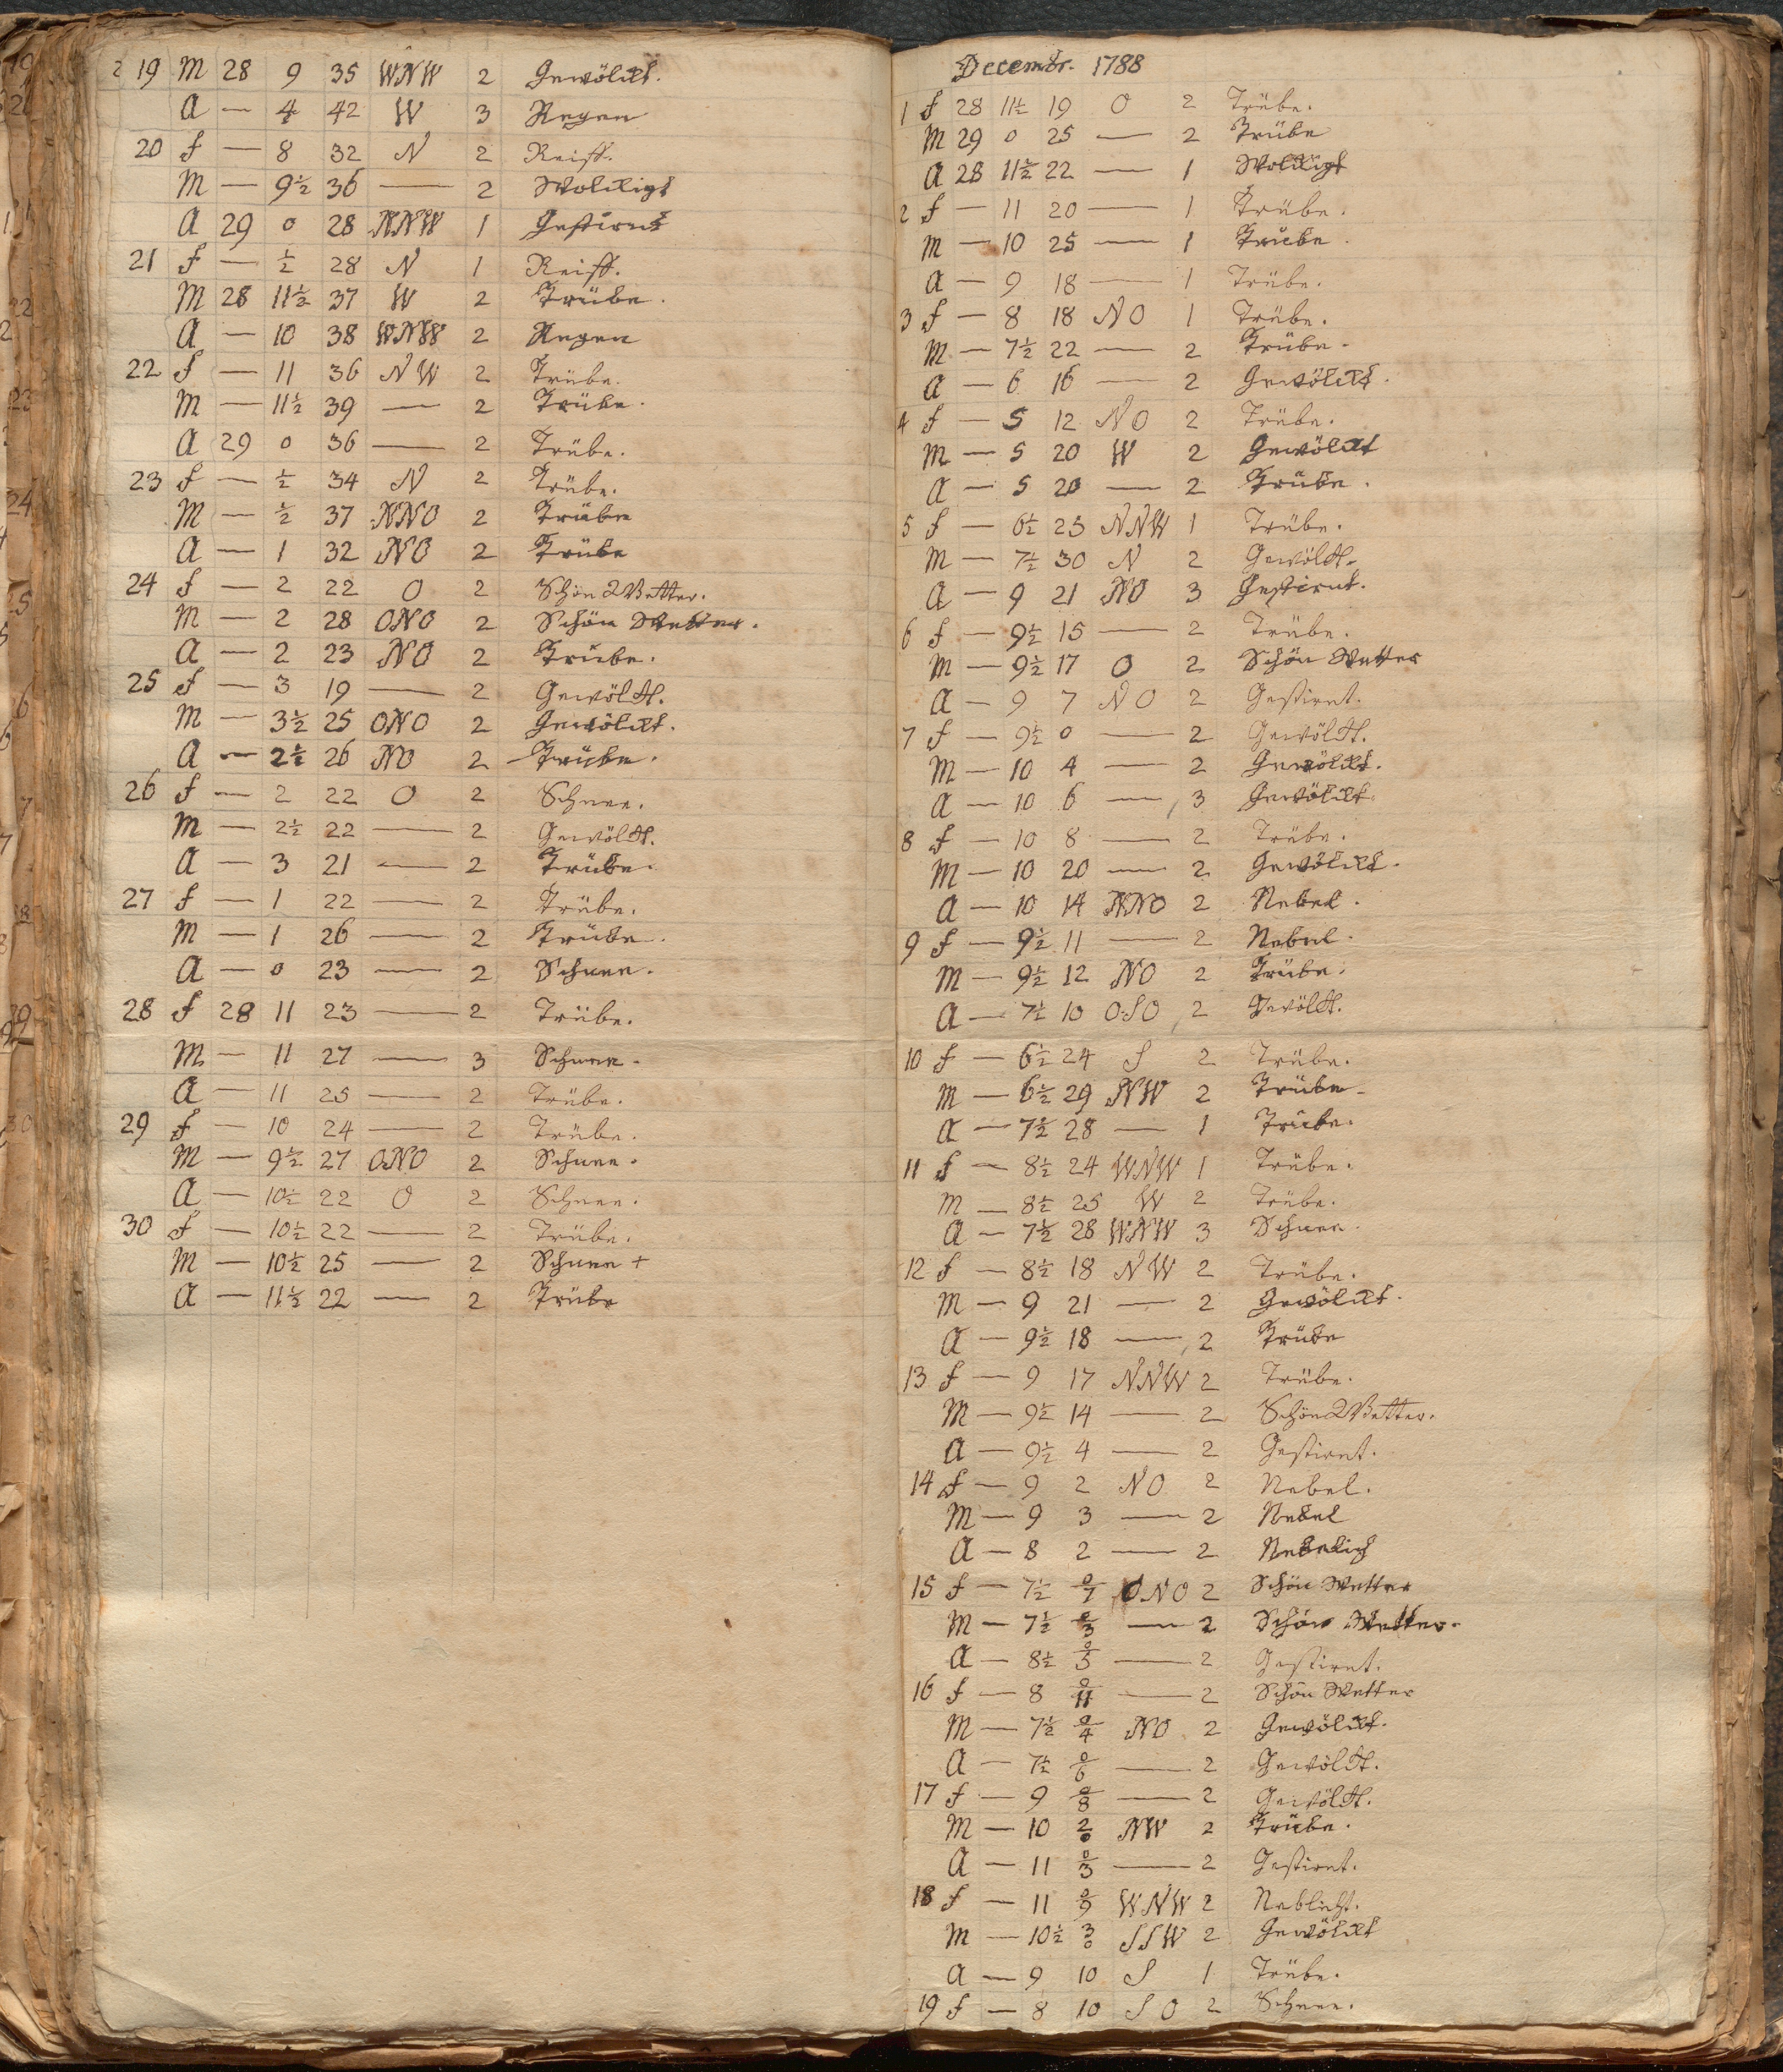 2 19 M 28 9 35 WNW 2 Gewölckt.
A — 4 42 W 3 Regen
20 f — 8 32 N 2 Reiff.
M — 9½ 36 — 2 Wolckigt
A 29 0 28 NNW 1 Gestirnt
21 f — ½ 28 N 1 Reiff.
M 28 11½ 37 W 2 Trübe.
A — 10 38 WNW 2 Regen
22 f — 11 36 NW 2 Trübe.
M — 11½ 39 — 2 Trübe.
A 29 0 36 — 2 Trübe.
23 f — ½ 34 N 2 Trübe.
M — ½ 37 NNO 2 Trübe
A — 1 32 NO 2 Trübe
24 f — 2 22 O 2 Schön Wetter.
M — 2 28 ONO 2 Schön Wetter.
A — 2 23 NO 2 Trübe.
25 f — 3 19 — 2 Gewölckt.
M — 3½ 25 ONO 2 Gewölckt.
A — 2½ 26 NO 2 Trübe.
26 f — 2 22 O 2 Schnee.
M — 2½ 22 — 2 Gewölckt.
A — 3 21 — 2 Trübe.
27 f — 1 22 — 2 Trübe.
M — 1 26 — 2 Trübe.
A — 0 23 — 2 Schnee.
28 f 28 11 23 — 2 Trübe.
M — 11 27 — 3 Schnee.
A — 11 25 — 2 Trübe.
29 f — 10 24 — 2 Trübe.
M — 9½ 27 ONO 2 Schnee.
A — 10½ 22 O 2 Schnee.
30 f — 10½ 22 — 2 Trübe.
M — 10½ 25 — 2 Schnee +
A — 11½ 22 — 2 Trübe
Decembr. 1788
1 f 28 11½ 19 O 2 Trübe.
M 29 0 25 — 2 Trübe
A 28 11½ 22 — 1 Wolckigt
2 f — 11 20 — 1 Trübe.
M — 10 25 — 1 Trübe.
A — 9 18 — 1 Trübe.
3 f — 8 18 NO 1 Trübe.
M — 7½ 22 — 2 Trübe.
A — 6 16 — 2 Gewölckt.
4 f — 5 12 NO 2 Trübe.
M — 5 20 W 2 Gewölckt
A — 5 20 — 2 Trübe.
5 f — 6½ 23 NNW 1 Trübe.
M — 7½ 30 N 2 Gewölckt.
A — 9 21 NO 3 Gestirnt.
6 f — 9½ 15 — 2 Trübe.
M — 9½ 17 O 2 Schön Wetter
A — 9 7 NO 2 Gestirnt.
7 f — 9½ 0 — 2 Gewölckt.
M — 10 4 — 2 Gewölckt.
A — 10 6 — 3 Gewölckt.
8 f — 10 8 — 2 Trübe.
M — 10 20 — 2 Gewölckt.
A — 10 14 NNO 2 Nebel.
9 f — 9½ 11 — 2 Nebel.
M — 9½ 12 NO 2 Trübe.
A — 7½ 10 OSO 2 Gewölckt.
10 f — 6½ 24 S 2 Trübe.
M — 6½ 29 NW 2 Trübe.
A — 7½ 28 — 1 Trübe.
11 f — 8½ 24 WNW 1 Trübe.
M — 8½ 25 W 2 Trübe.
A — 7½ 28 WNW 3 Schnee.
12 f — 8½ 18 NW 2 Trübe.
M — 9 21 — 2 Gewölckt.
A — 9½ 18 — 2 Trübe
13 f — 9 17 NNW 2 Trübe.
M — 9½ 14 — 2 Schön Wetter.
A — 9½ 4 — 2 Gestirnt.
14 f — 9 2 NO 2 Nebel.
M — 9 3 — 2 Nebel
A — 8 2 — 2 Nebelich
15 f — 7½ 0/7 ONO 2 Schön Wetter
M — 7½ 0/3 — 2 Schön Wetter.
A — 8½ 0/5 — 2 Gestirnt.
16 f — 8 0/11 — 2 Schön Wetter
M — 7½ 0/4 NO 2 Gewölckt.
A — 7½ 0/6 — 2 Gewölckt.
17 f — 9 0/8 — 2 Gewölckt.
M — 10 2/0 NW 2 Trübe.
A — 11 0/3 — 2 Gestirnt.
18 f — 11 0/9 WNW 2 Neblicht.
M — 10½ 3/0 SSW 2 Gewölckt
A — 9 10 S 1 Trübe.
19 f — 8 10 SO 2 Schnee.